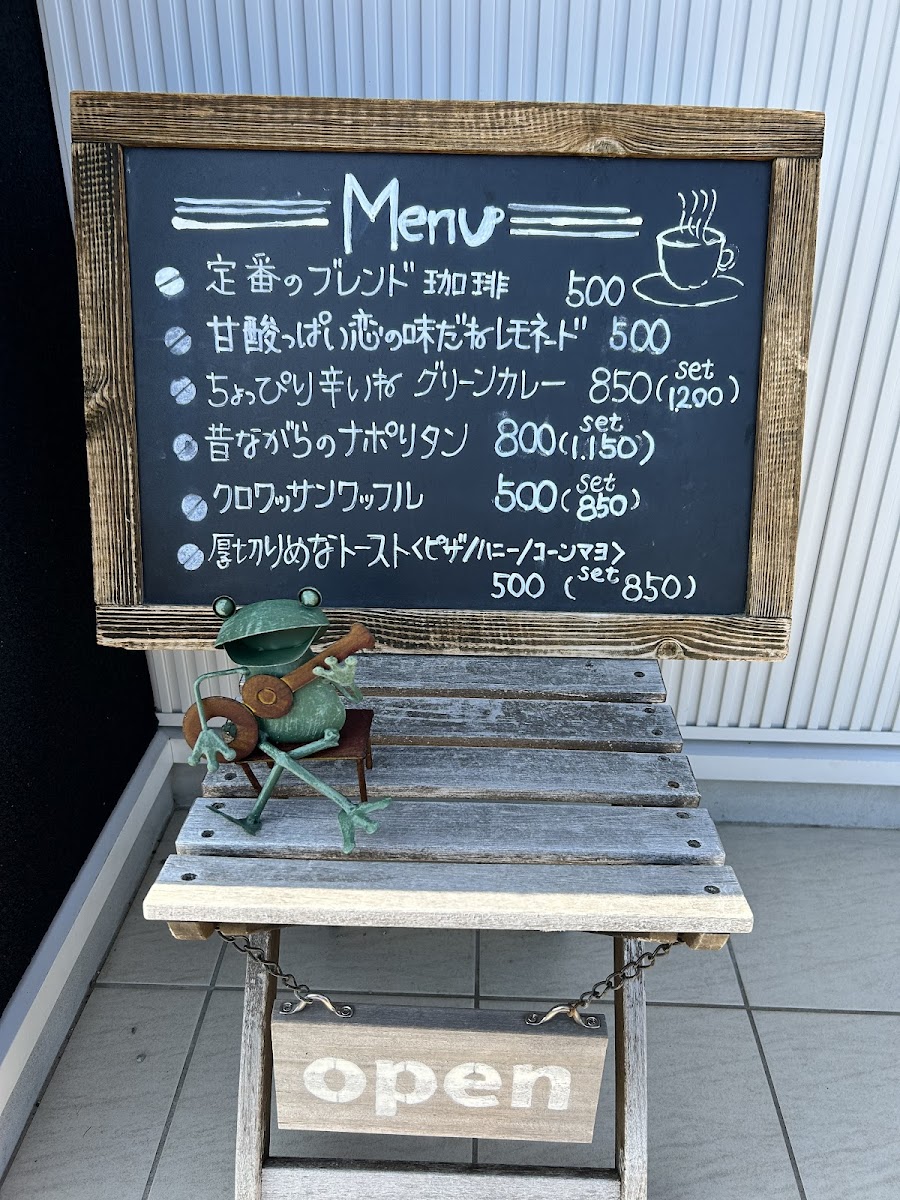 Menu
定番のブレンド珈琲 500
甘酸っぱい恋の味だねレモネード 500
ちょっぴり辛いね グリーンカレー 850(set 1.200)
昔ながらのナポリタン 800(set 1.150)
クロワッサンワッフル 500(set 850)
厚切りめなトースト<ピザ/ハニー/コーンマヨ>
500 (set 850)
open